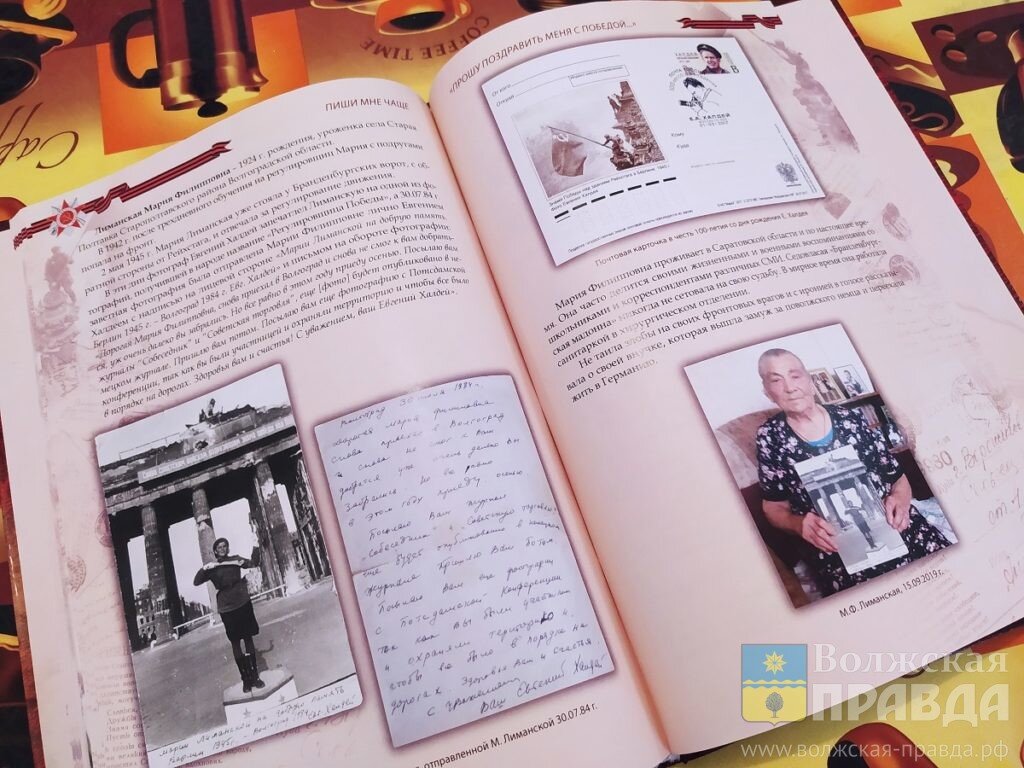 COFFEE TIME
ПИШИ МНЕ ЧАЩЕ
Лиманская Мария Филипповна - 1924 г. рождения, уроженка села Старая
Полтавка Старополтавского района Волгоградской области.
В 1942 г. после трехдневного обучения на регулировщиц Мария с подругами
попала на фронт.
2 мая 1945 г. Мария Лиманская уже стояла у Бранденбургских ворот, с об-
ратной стороны от Рейхстага, и отвечала за регулирование движения.
В эти дни фотограф Евгений Халдей запечатлел Лиманскую на одной из фо-
тографий, получивших в народе название «Регулировщица Победы», а 30.07.84
заветная фотография была отправлена Марии Филипповне лично Евгением
Халдеем с надписью на лицевой стороне: «Марии Лиманской на добрую память.
Берлин 1945 г. – Волгоград 1984 г. Евг. Халдей» и письмом на обороте фотографии.
"Дорогая Мария Филипповна, снова приехал в Волгоград и снова не смог к вам добрать-
ся, уж очень далеко вы забрались. Но все равно в этом году приеду осенью. Посылаю вам
журналы "Собеседник" и "Советская торговля", еще [фото] будет опубликовано в не-
мецком журнале. Пришлю вам потом. Посылаю вам еще фотографию с Потсдамской
конференции, так как вы были участницей и охраняли территорию и чтобы все было
в порядке на дорогах. Здоровья вам и счастья! С уважением, ваш Евгений Халдей».
Марии Лиманской на добрую память
Берлин 1945г. - Волгоград 1984. Евг. Халдей
Волгоград 30 июля 1984 г.
Дорогая Мария Филипповна
снова приехал в Волгоград
и снова не смог к Вам
добраться уж очень далеко Вы
забрались но все равно
в этом году приеду осенью.
Посылаю Вам журнал
Собеседник и Советскую торговлю
еще будет опубликовано в немецком
журнале Пришлю Вам потом.
Посылаю Вам еще фотографию
с Потсдамской Конференции
так как Вы были участник
и охраняли территорию и
чтобы все было в порядке на
дорогах. Здоровья Вам и счастья
с уважением
Ваш Евгений Халдей
отправленной М. Лиманской 30.07.84 г.
«ПРОШУ ПОЗДРАВИТЬ МЕНЯ С ПОБЕДОЙ...»
От кого
Откуда
Кому
Куда
Е.А. ХАЛДЕЙ
Знамя Победы над зданием Рейхстага в Берлине. 1945 г.
Фото Евгения Халдея
Почтовая карточка в честь 100-летия со дня рождения Е. Халдея
Мария Филипповна проживает в Саратовской области и по настоящее вре-
мя. Она часто делится своими жизненными и военными воспоминаниями со
школьниками и корреспондентами различных СМИ. Седовласая «Бранденбург-
ская мадонна» никогда не сетовала на свою судьбу. В мирное время она работала
санитаркой в хирургическом отделении.
Не таила злобы на своих фронтовых врагов и с иронией в голосе рассказы-
вала о своей внучке, которая вышла замуж за поволжского немца и переехала
жить в Германию.
М.Ф. Лиманская, 15.09.2019 г.
Волжская
ПРАВДА
www.волжская-правда.рф